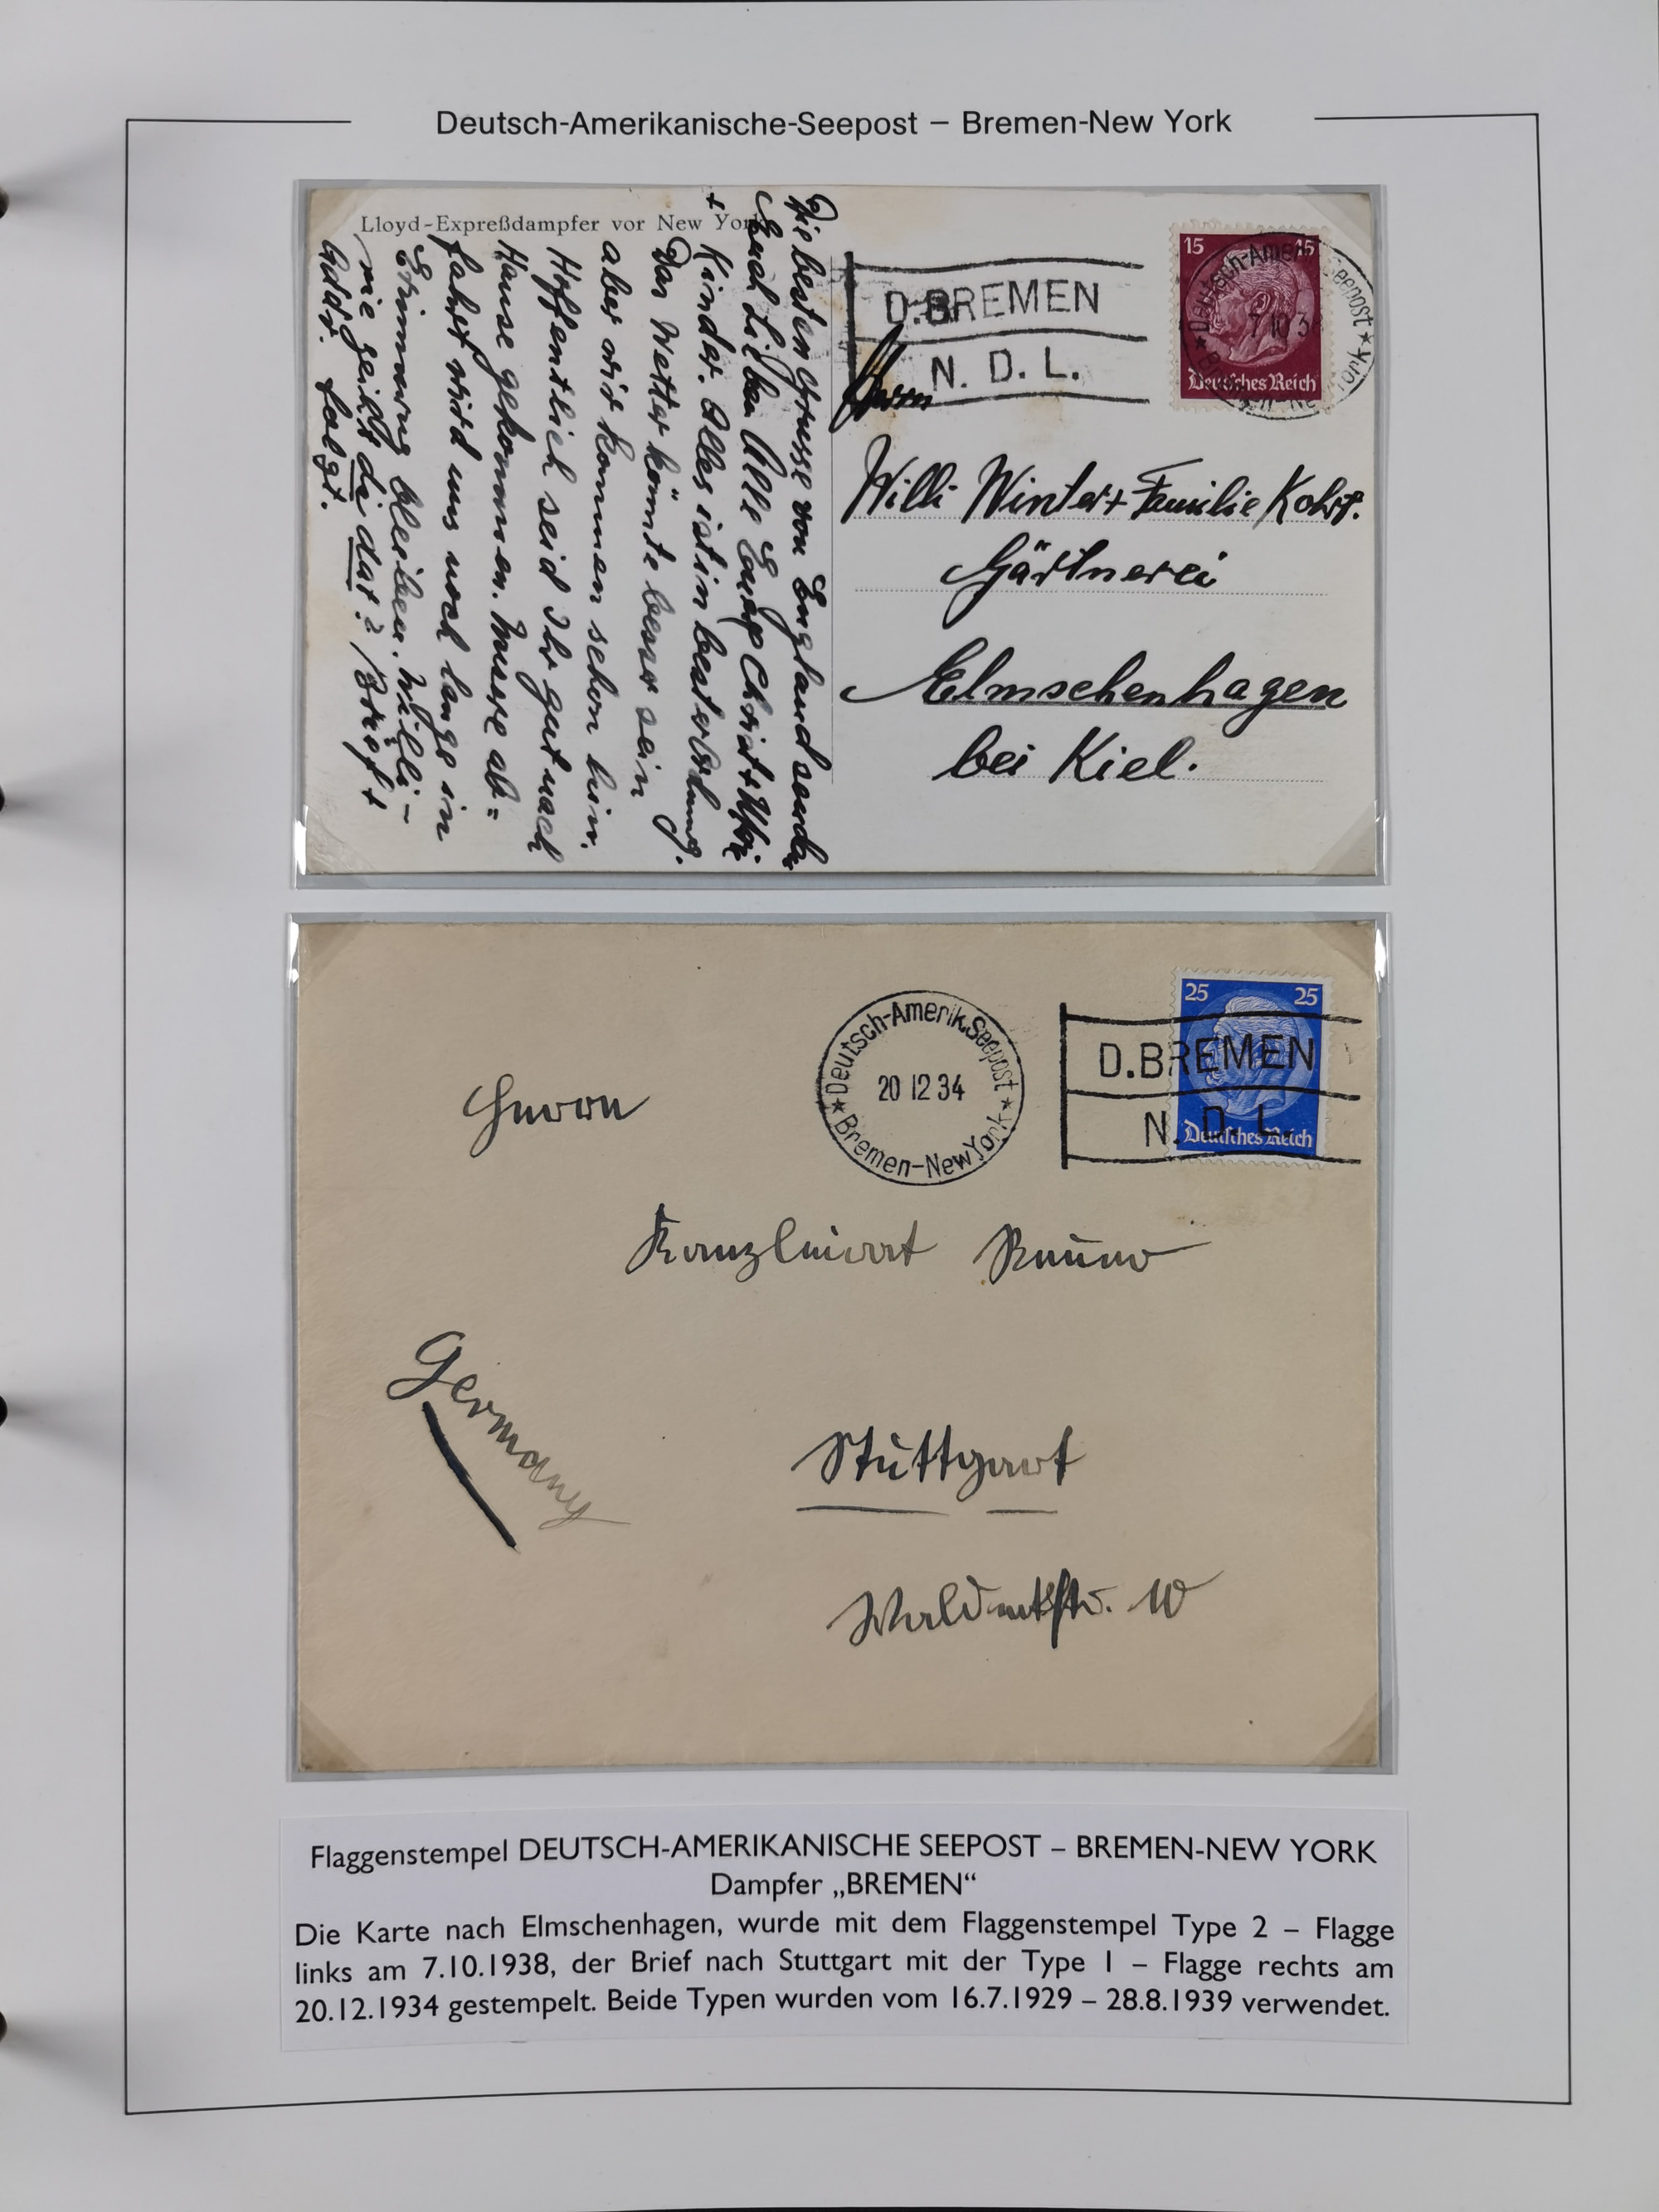 Deutsch-Amerikanische-Seepost – Bremen-New York
Lloyd-Expreßdampfer vor New York
Die besten Grüsse von England sendet
Euch Lieben Alle Euer Christ +
+ Kinder. Alles ist in bester Ordnung.
Das Wetter könnte besser sein
aber wir kommen schon hin.
Hoffentlich seid Ihr gut nach
Hause gekommen. Unsere ab=
fahrt wird uns noch lange in
Erinnerung bleiben. Willi –
wie geiht di dat? / Brief +
Addr. folgt.
D.BREMEN
N. D. L.
15 15
Deutsches Reich
Deutsch-Amerik. Seepost
Bremen-New York
7 10 3
Herrn
Willi Winter + Familie Kohrt.
Gärtnerei
Elmschenhagen
bei Kiel.
Deutsch-Amerik.Seepost
20 12 34
Bremen-New York
D.BREMEN
N. D. L.
25 25
Deutsches Reich
Herrn
Kanzleirat
Germany
Stuttgart
10
Flaggenstempel DEUTSCH-AMERIKANISCHE SEEPOST – BREMEN-NEW YORK
Dampfer „BREMEN“
Die Karte nach Elmschenhagen, wurde mit dem Flaggenstempel Type 2 – Flagge
links am 7.10.1938, der Brief nach Stuttgart mit der Type 1 – Flagge rechts am
20.12.1934 gestempelt. Beide Typen wurden vom 16.7.1929 – 28.8.1939 verwendet.